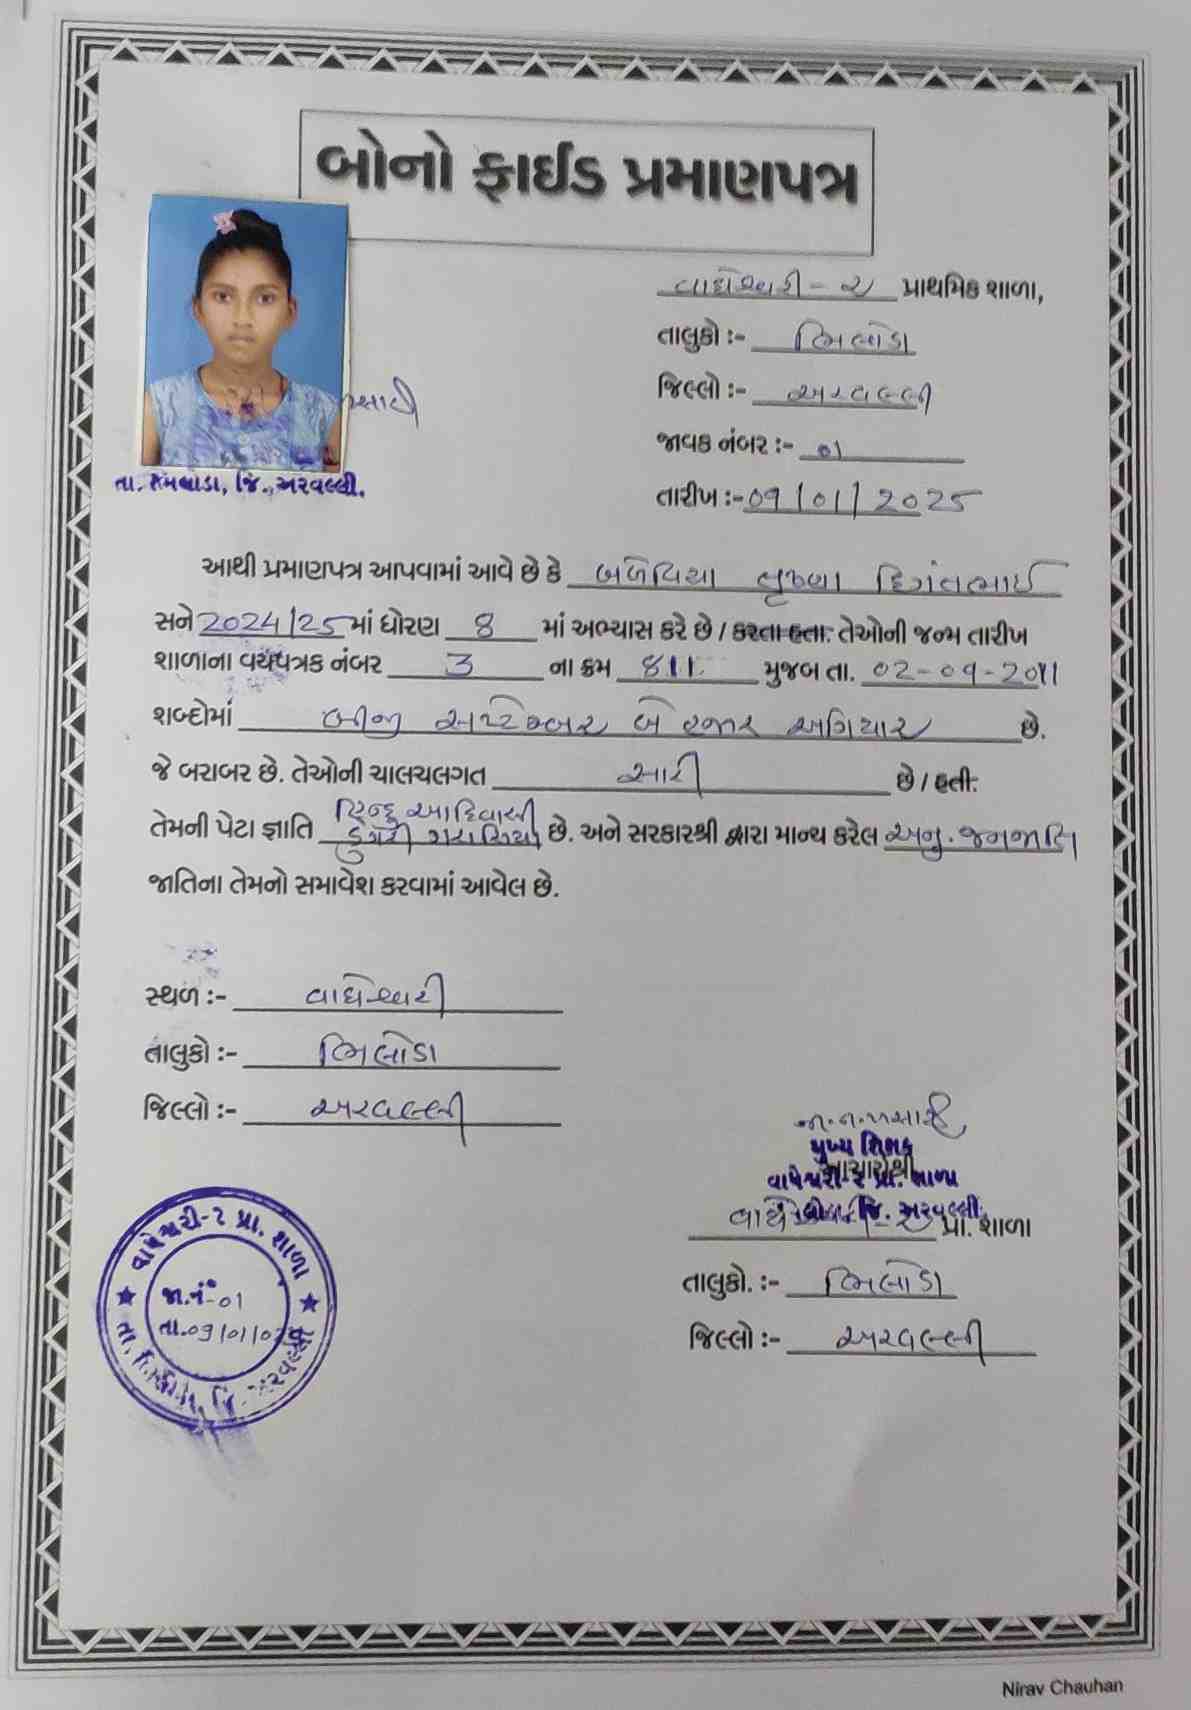 બોનો ફાઈડ પ્રમાણપત્ર
વાઘેશ્વરી - ૨ પ્રાથમિક શાળા,
તાલુકો :- ભિલોડા
જિલ્લો :- અરવલ્લી
જાવક નંબર :- 01
તારીખ :- 09/01/2025
તા. ભિલોડા, જિ. અરવલ્લી.
આથી પ્રમાણપત્ર આપવામાં આવે છે કે બળેવિયા તૃષ્ણા દિગંતભાઈ
સને 2024/25 માં ધોરણ 8 માં અભ્યાસ કરે છે / કરતા હતા. તેઓની જન્મ તારીખ
શાળાના વયપત્રક નંબર 3 ના ક્રમ 811 મુજબ તા. 02-09-2011
શબ્દોમાં બીજી સપ્ટેમ્બર બે હજાર અગિયાર છે.
જે બરાબર છે. તેઓની ચાલચલગત સારી છે / હતી.
તેમની પેટા જ્ઞાતિ હિન્દુ આદિવાસી ડુંગરી ગરાસિયા છે. અને સરકારશ્રી દ્વારા માન્ય કરેલ અનુ. જનજાતિ
જાતિના તેમનો સમાવેશ કરવામાં આવેલ છે.
સ્થળ :- વાઘેશ્વરી
તાલુકો :- ભિલોડા
જિલ્લો :- અરવલ્લી
મુખ્ય શિક્ષક
આચાર્યશ્રી
વાઘેશ્વરી-૨ પ્રા. શાળા
જિ. અરવલ્લી
પ્રા. શાળા
તાલુકો. :- ભિલોડા
જિલ્લો :- અરવલ્લી
વાઘેશ્વરી-૨ પ્રા. શાળા
જા.નં.-01
તા.09/01/025
તા. ભિલોડા, જિ. અરવલ્લી
Nirav Chauhan